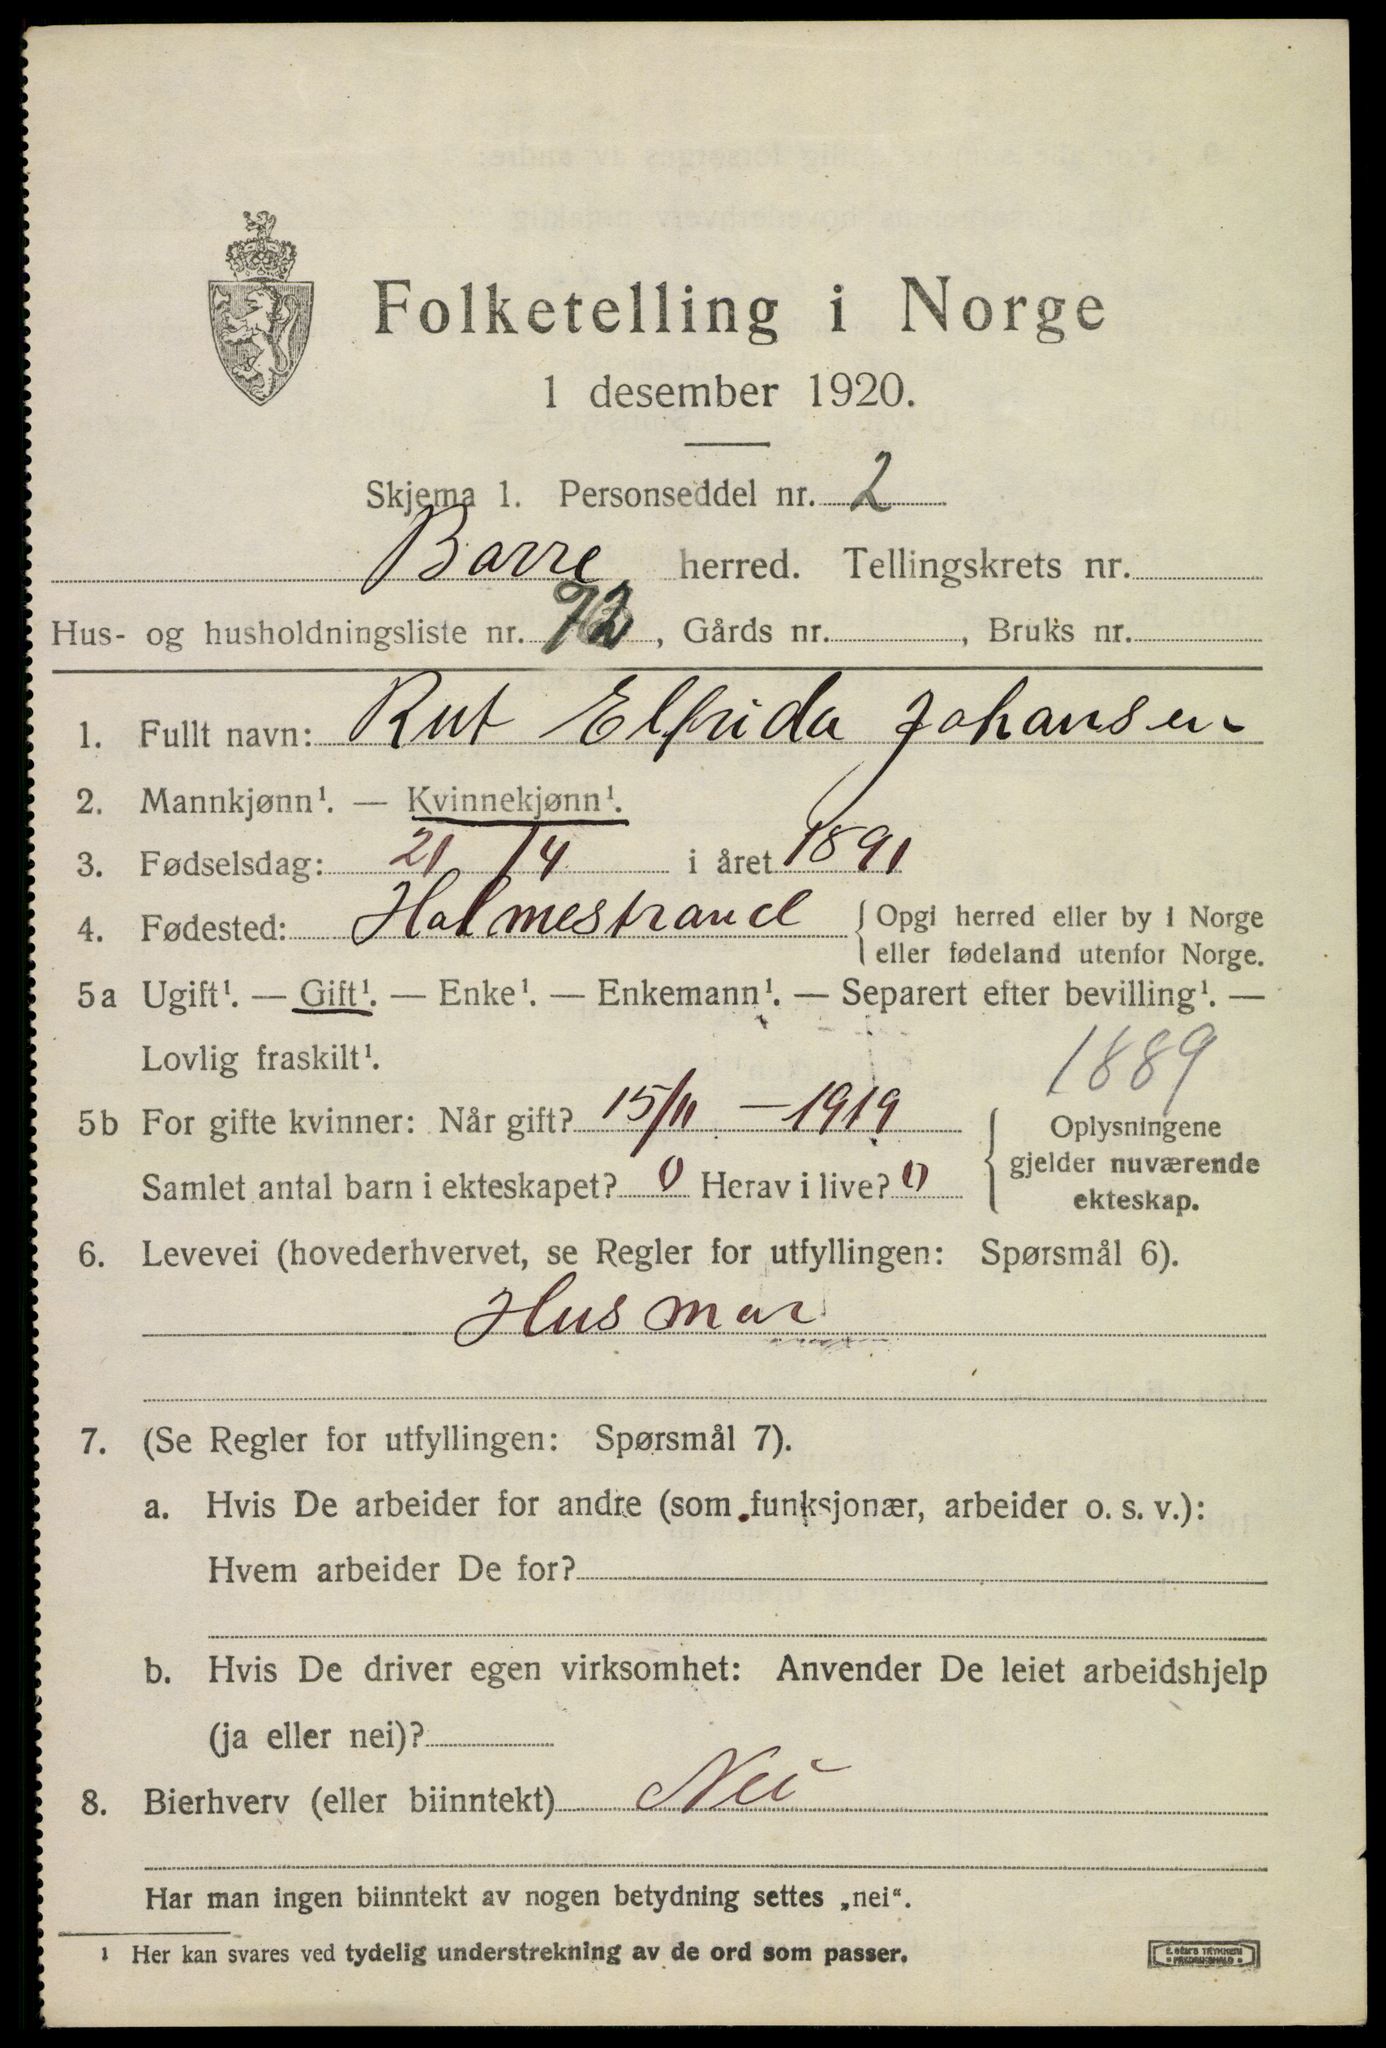 Folketelling i Norge
1 desember 1920.
Skjema 1. Personseddel nr. 2
Borre herred. Tellingskrets nr.
Hus- og husholdningsliste nr. 72, Gårds nr. , Bruks nr.
1. Fullt navn: Rut Elfrida Johansen
2. Mannkjønn¹. — Kvinnekjønn¹.
3. Fødselsdag: 21/4 i året 1891
4. Fødested: Holmestrand { Opgi herred eller by i Norge
eller fødeland utenfor Norge.
5a Ugift¹. — Gift¹. — Enke¹. — Enkemann¹. — Separert efter bevilling¹. —
Lovlig fraskilt¹.
1889
5b For gifte kvinner: Når gift? 15/11 — 1919
Samlet antal barn i ekteskapet? 0 Herav i live? 0
Oplysningene
gjelder nuværende
ekteskap.
6. Levevei (hovederhvervet, se Regler for utfyllingen: Spørsmål 6).
Husmor
7. (Se Regler for utfyllingen: Spørsmål 7).
a. Hvis De arbeider for andre (som funksjonær, arbeider o. s. v.):
Hvem arbeider De for?
b. Hvis De driver egen virksomhet: Anvender De leiet arbeidshjelp
(ja eller nei)?
8. Bierhverv (eller biinntekt) Nei
Har man ingen biinntekt av nogen betydning settes „nei“.
1 Her kan svares ved tydelig understrekning av de ord som passer.